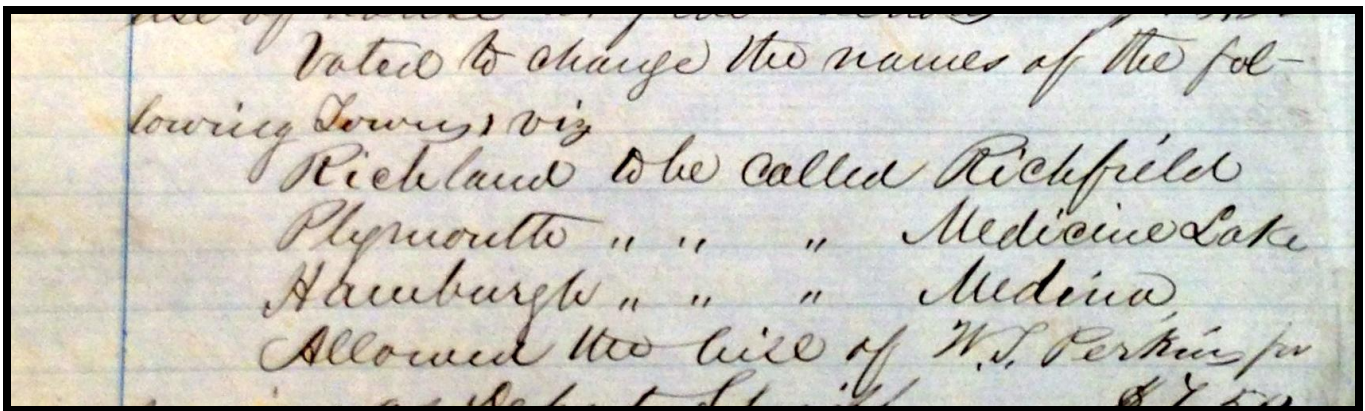 Voted to change the names of the fol-
lowing Towns, viz
Richland to be called Richfield
Plymouth " " " Medicine Lake
Hamburgh " " " Medina
Allowed the bill of W.S. Perkins for
as Deput Sheriff $7.50